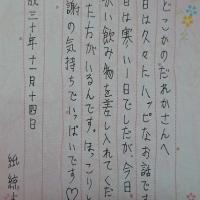 どこかのだれかさんへ
日は久々にハッピなお話です
日は寒い一日でしたが、今日
かい飲み物を差し入れてくだ
た方がいるんです。ほっこりし
謝の気持ちでいっぱいです♡
成三十年十二月十四日
紙